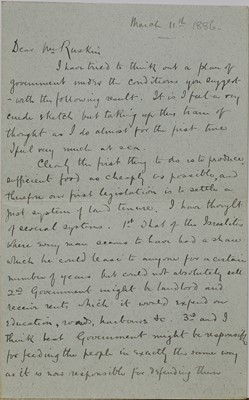 March 11th 1886.
Dear Mr Ruskin
I have tried to think out a plan of
government under the conditions you suggest
- with the following result. It is I feel a very
crude sketch but taking up this train of
thought as I do almost for the first time
I feel very much at sea.
Clearly the first thing to do is to produce
sufficient food as cheaply as possible, and
therefore our first legislation is to settle a
just system of land tenure. I have thought
of several systems. 1st That of the Israelites
where every man seems to have had a share
which he could lease to anyone for a certain
number of years but could not absolutely sell
2nd Government might be landlord and
receive rents which it would expend on
education, roads, harbours &c. 3rd and I
think best Government might be responsible
for feeding the people in exactly the same way
as it is now responsible for defending them